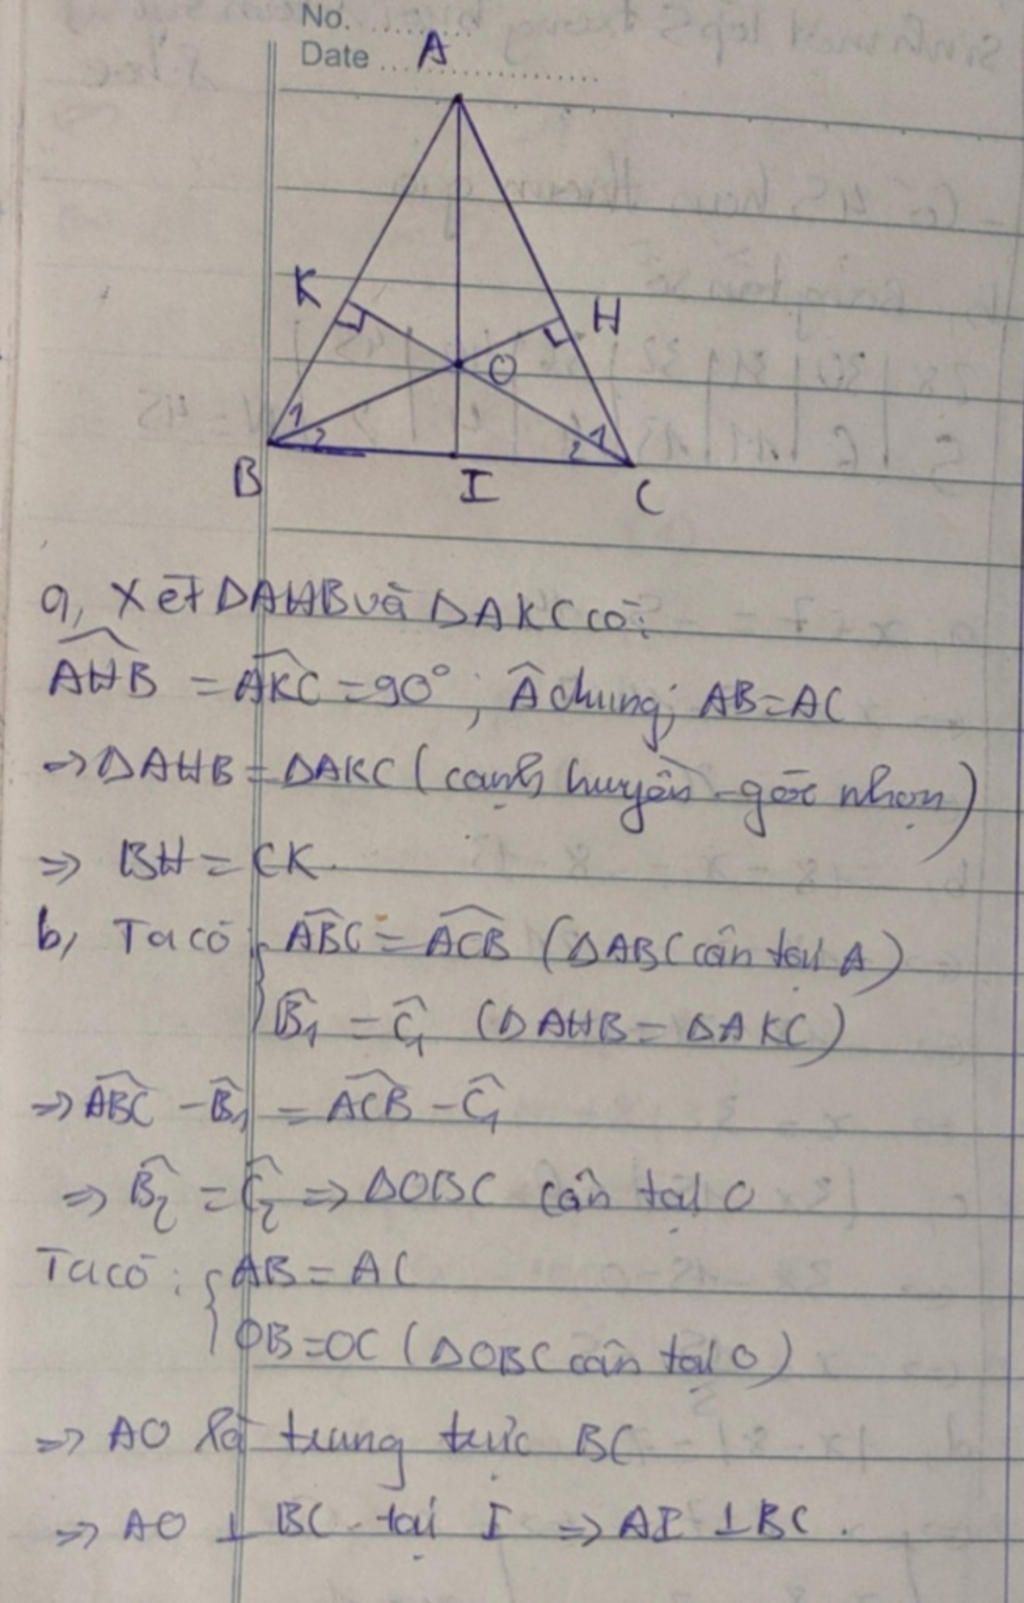 No. ............
Date ....................
A
K
H
O
1
2
1
2
B
I
C
a, Xét ΔAHB và ΔAKC có:
\widehat{AHB} = \widehat{AKC} = 90°; Â chung; AB = AC
⇒ ΔAHB = ΔAKC (cạnh huyền - góc nhọn)
⇒ BH = CK.
b, Ta có { \widehat{ABC} = \widehat{ACB} (ΔABC cân tại A)
\widehat{B₁} = \widehat{C₁} (ΔAHB = ΔAKC)
⇒ \widehat{ABC} - \widehat{B₁} = \widehat{ACB} - \widehat{C₁}
⇒ \widehat{B₂} = \widehat{C₂} ⇒ ΔOBC cân tại O
Ta có: { AB = AC
OB = OC (ΔOBC cân tại O)
⇒ AO là trung trực BC
⇒ AO ⊥ BC tại I ⇒ AI ⊥ BC.